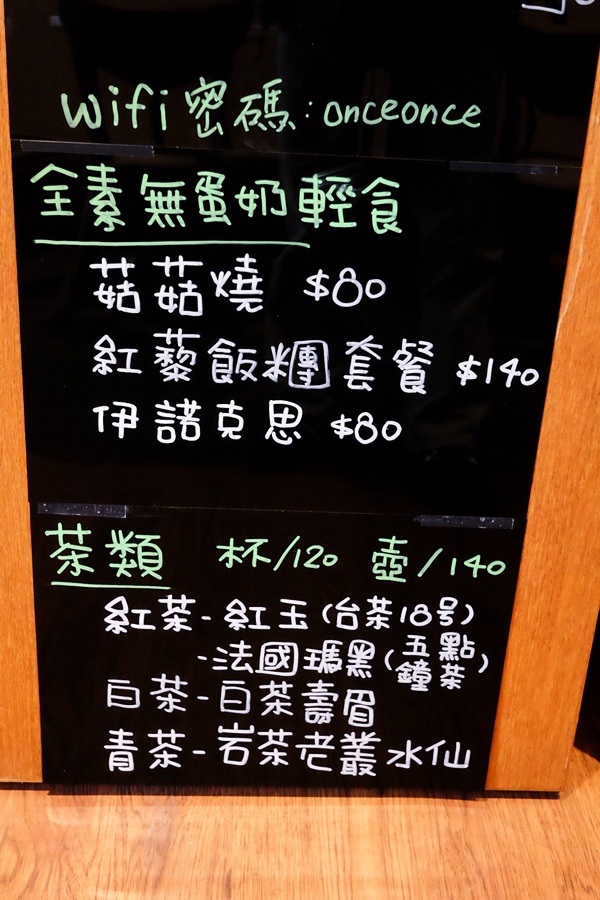 wifi 密碼：onceonce
全素無蛋奶輕食
菇菇燒 $80
紅藜飯糰套餐 $140
伊諾克思 $80
茶類 杯/120 壺/140
紅茶-紅玉(台茶18号)
-法國瑪黑(五點鐘茶)
白茶-白茶壽眉
青茶-岩茶老叢水仙